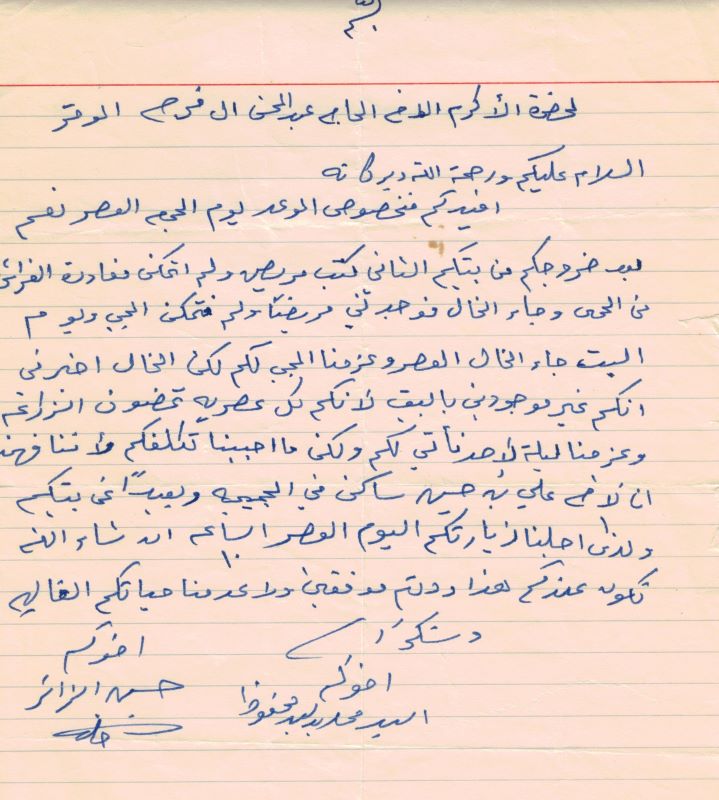 لحضرة الأكرم الاخ الحاج عبدالمحسن ال فرج الموقر
السلام عليكم ورحمة الله وبركاته
افيدكم فبخصوص الموعد ليوم الجمعه العصر نعم
بعد خروجكم من بيتكم الثاني كنت مريض ولم اتمكن مغادرة الفراش
من الحمى وجاء الخال فوجدني مريضًا ولم نتمكن المجي ويوم
السبت جاء الخال العصر وعزمنا المجي لكم لكن الخال اخبرني
انكم غير موجودين بالبيت لانكم كل عصريه تمضون الزراعه
وعزمنا ليلة الاحد نأتي لكم ولكن ما احببنا نكلفكم ولاننا فهمنا
ان الاخ علي بن حسين ساكن في الجميمه وبعيدًا عن بيتكم
ولذى اجلنا زيارتكم اليوم العصر الساعه ١٠ ان شاء الله
نكون عندكم هذا ودمتم موفقين ولا عدمنا حياتكم الغاليه
وشكرًا
اخوكم
السيد محمد
اخوكم
حسين الزائر